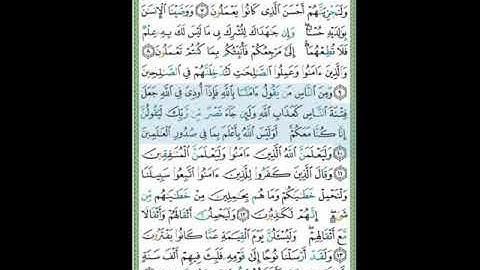 وَلَنَجْزِيَنَّهُمْ أَحْسَنَ الَّذِي كَانُوا يَعْمَلُونَ ٧ وَوَصَّيْنَا الْإِنسَانَ
بِوَالِدَيْهِ حُسْنًا ۖ وَإِن جَاهَدَاكَ لِتُشْرِكَ بِي مَا لَيْسَ لَكَ بِهِ عِلْمٌ
فَلَا تُطِعْهُمَا ۚ إِلَيَّ مَرْجِعُكُمْ فَأُنَبِّئُكُم بِمَا كُنتُمْ تَعْمَلُونَ ٨
وَالَّذِينَ ءَامَنُوا وَعَمِلُوا الصَّالِحَاتِ لَنُدْخِلَنَّهُمْ فِي الصَّالِحِينَ
٩ وَمِنَ النَّاسِ مَن يَقُولُ ءَامَنَّا بِاللَّهِ فَإِذَا أُوذِيَ فِي اللَّهِ جَعَلَ
فِتْنَةَ النَّاسِ كَعَذَابِ اللَّهِ وَلَئِن جَاءَ نَصْرٌ مِّن رَّبِّكَ لَيَقُولُنَّ
إِنَّا كُنَّا مَعَكُمْ ۚ أَوَلَيْسَ اللَّهُ بِأَعْلَمَ بِمَا فِي صُدُورِ الْعَالَمِينَ
١٠ وَلَيَعْلَمَنَّ اللَّهُ الَّذِينَ ءَامَنُوا وَلَيَعْلَمَنَّ الْمُنَافِقِينَ
١١ وَقَالَ الَّذِينَ كَفَرُوا لِلَّذِينَ ءَامَنُوا اتَّبِعُوا سَبِيلَنَا
وَلْنَحْمِلْ خَطَايَاكُمْ وَمَا هُم بِحَامِلِينَ مِنْ خَطَايَاهُم مِّن
شَيْءٍ ۖ إِنَّهُمْ لَكَاذِبُونَ ١٢ وَلَيَحْمِلُنَّ أَثْقَالَهُمْ وَأَثْقَالًا
مَّعَ أَثْقَالِهِمْ ۖ وَلَيُسْأَلُنَّ يَوْمَ الْقِيَامَةِ عَمَّا كَانُوا يَفْتَرُونَ
١٣ وَلَقَدْ أَرْسَلْنَا نُوحًا إِلَىٰ قَوْمِهِ فَلَبِثَ فِيهِمْ أَلْفَ سَنَةٍ